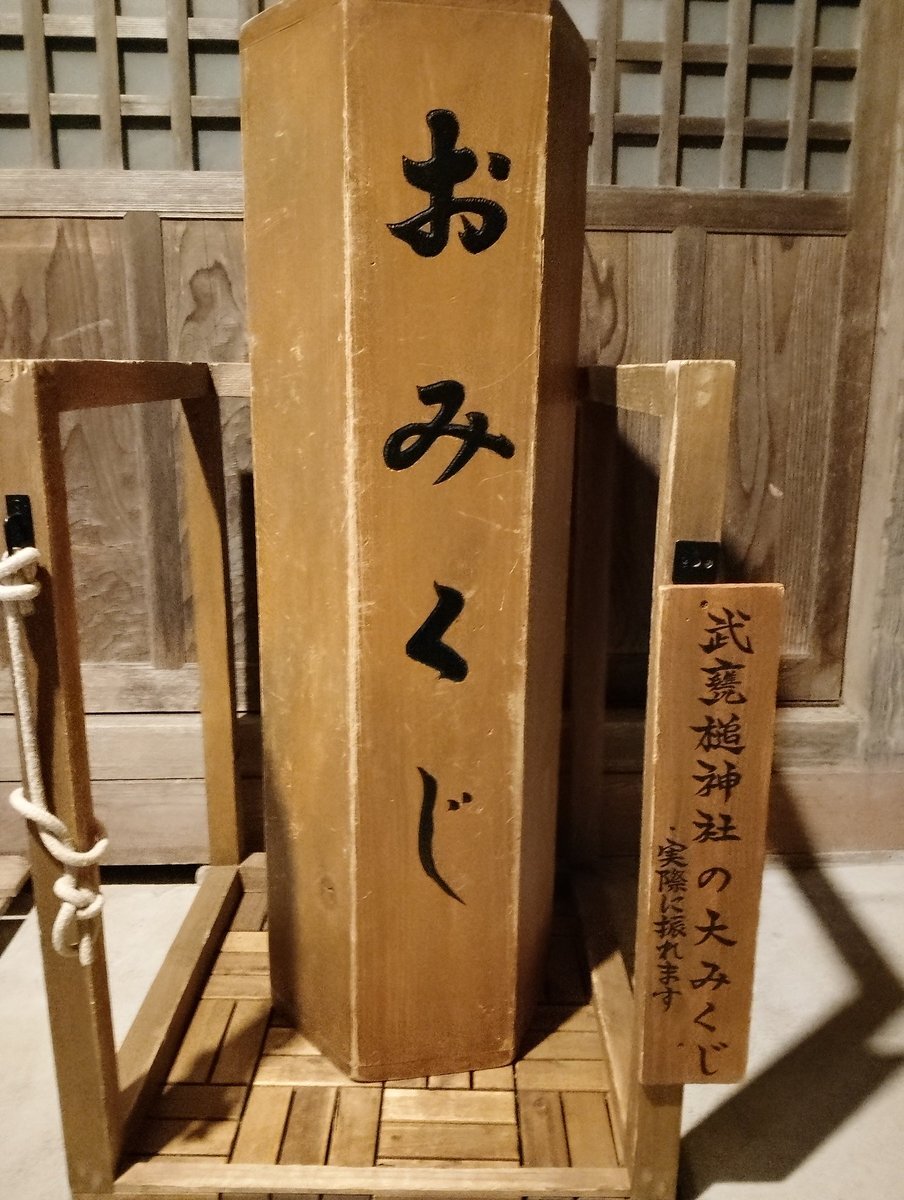 おみくじ
武甕槌神社の大みくじ
実際に振れます